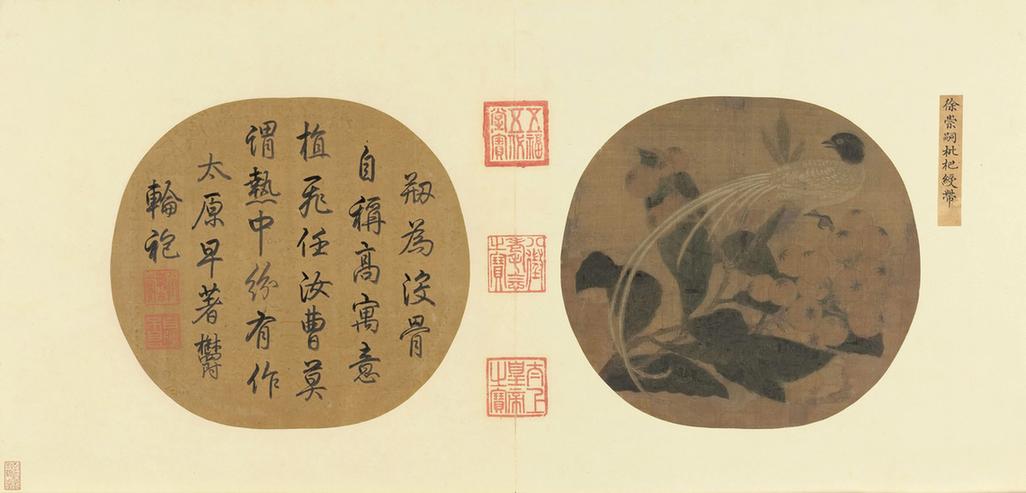 徐崇嗣枇杷綬帶
五福五代堂寶
八徵耄念之寶
太上皇帝之寶
剏為没骨
自稱高寓意
植飛任汝曹莫
謂熱中紛有作
太原早著欝
輪袍